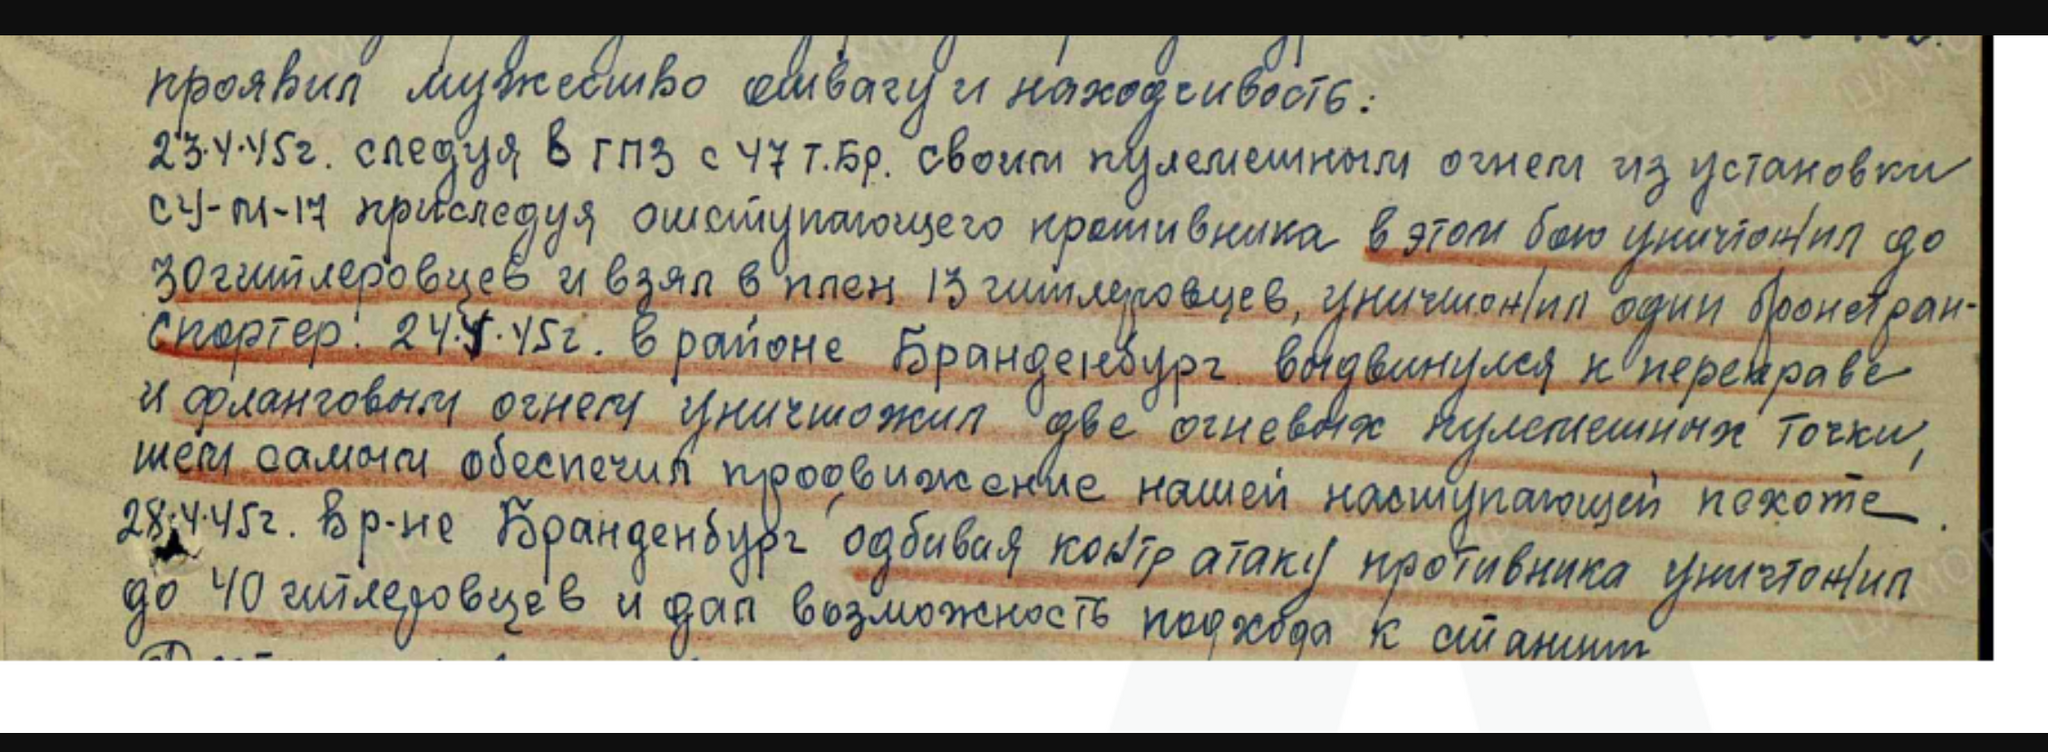 проявил мужество отвагу и находчивость:
23.4.45г. следуя в ГПЗ с 47 Т.Бр. своим пулеметным огнем из установки
СУ-М-17 приследуя отступающего противника в этом бою уничтожил до
30 гитлеровцев и взял в плен 13 гитлеровцев, уничтожил один бронетран-
спортер. 24.4.45г. в районе Бранденбург выдвинулся к переправе
и фланговым огнем уничтожил две огневых пулеметных точки,
тем самым обеспечил продвижение нашей наступающей пехоте.
28.4.45г. в р-не Бранденбург одбивая контр атаку противника уничтожил
до 40 гитлеровцев и дал возможность подхода к